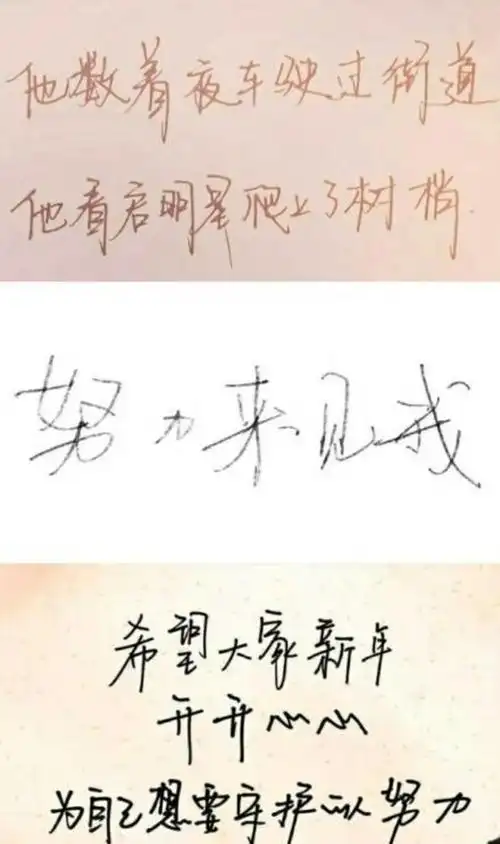 他数着夜车驶过街道
他看启明星爬上了树梢.
努力来见我
希望大家新年
开开心心
为自己想要守护 努力